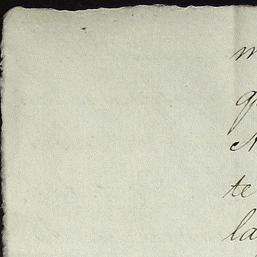 m
q
N
te
la